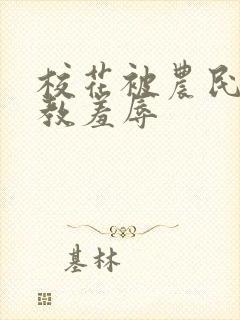 校花被農民
教羞辱
基林